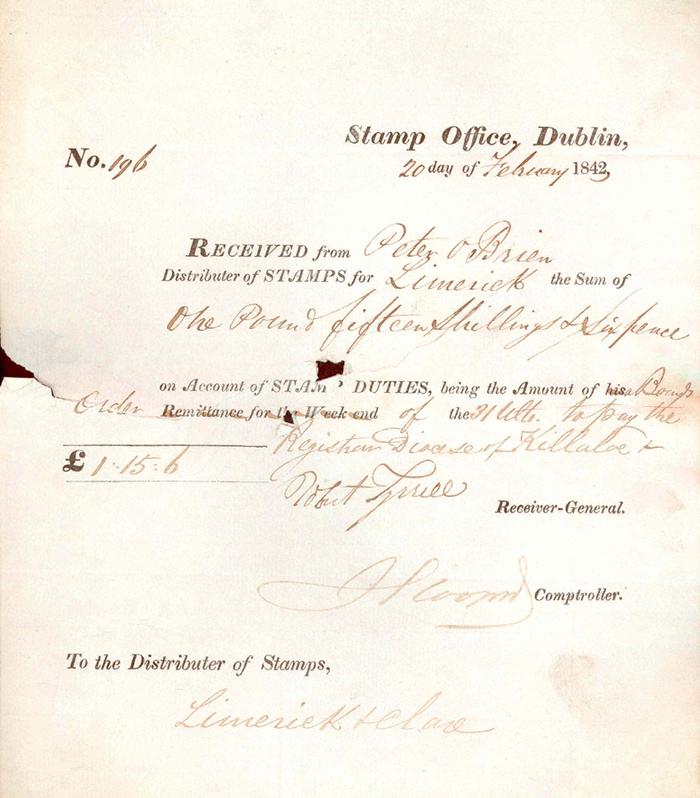 Stamp Office, Dublin,
No. 196
20 day of February 1842,
RECEIVED from Peter O'Brien
Distributer of STAMPS for Limerick the Sum of
One Pound fifteen Shillings & Sixpence
on Account of STAMP DUTIES, being the Amount of his a Boards
Order Remittance for the Week end of the 31 Ulto. to pay the
Registrar Diocese of Killaloe &
£ 1.15.6
Robert Tyrrell
Receiver-General.
Comptroller.
To the Distributer of Stamps,
Limerick & Clare